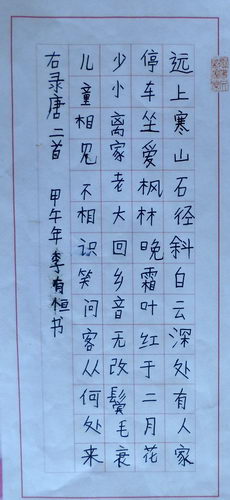 远上寒山石径斜白云深处有人家
停车坐爱枫林晚霜叶红于二月花
少小离家老大回乡音无改鬓毛衰
儿童相见不相识笑问客从何处来
右录唐二首 甲午年李有恒书